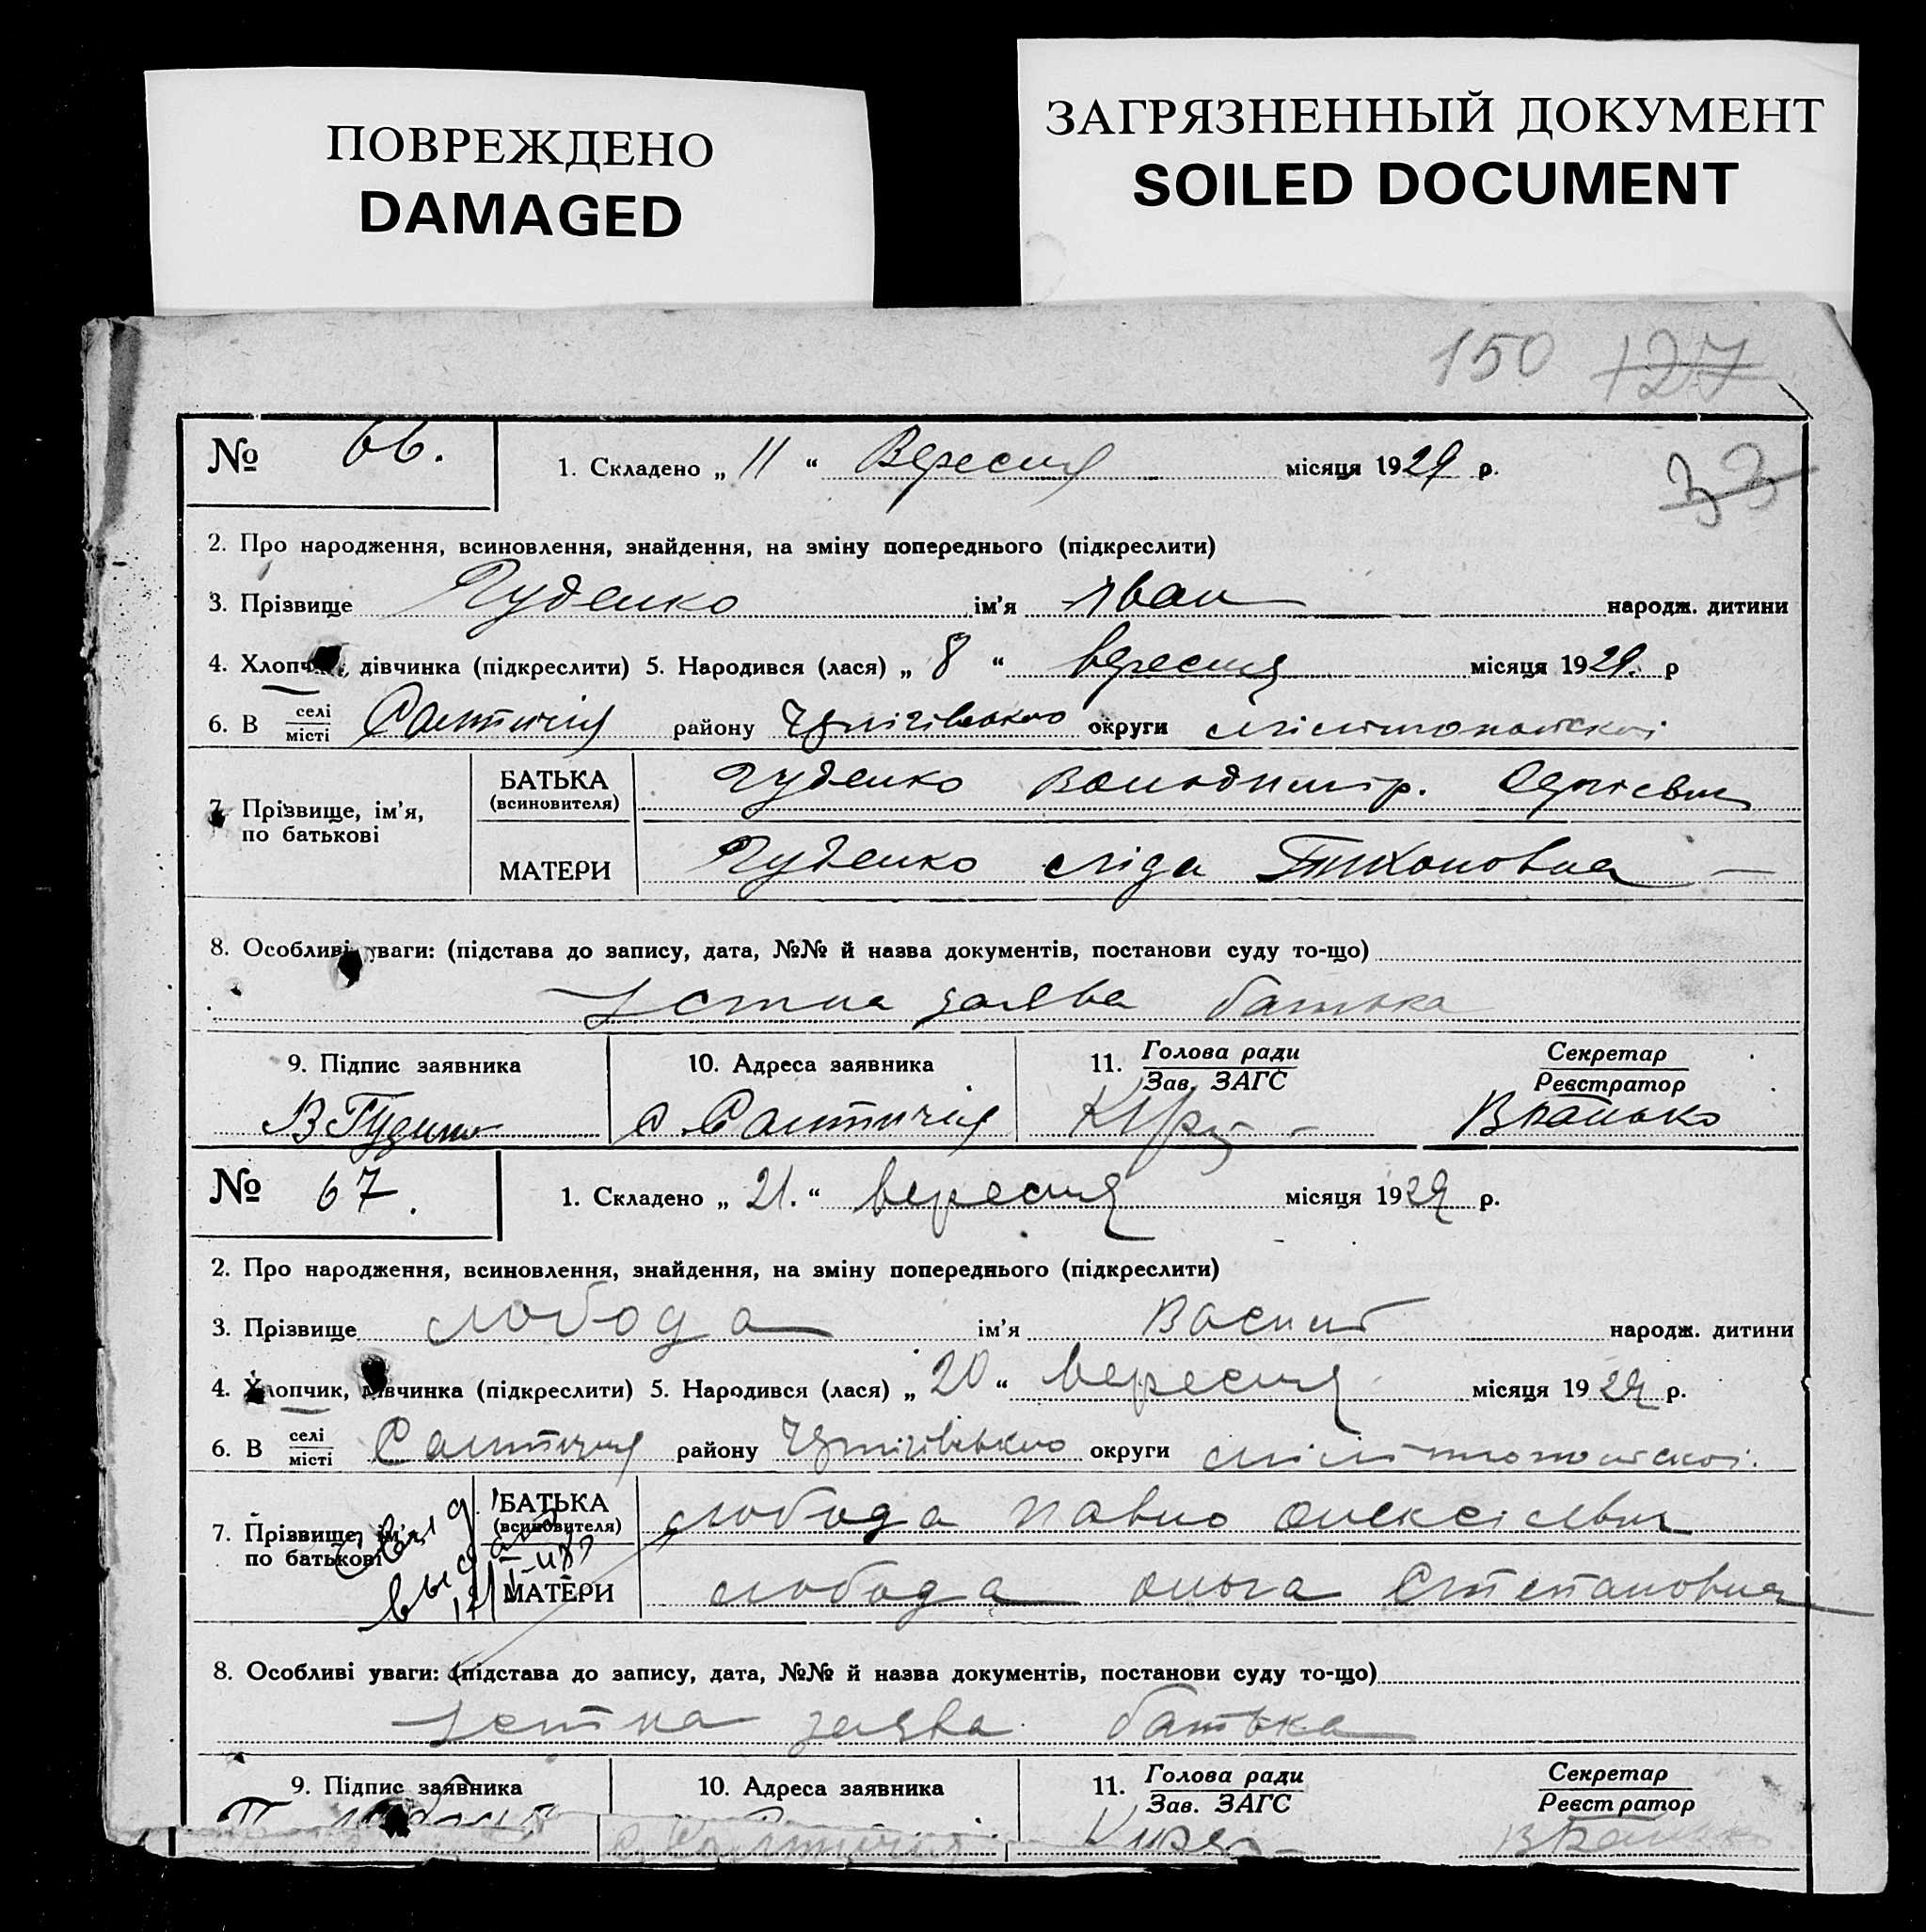 ПОВРЕЖДЕНО
DAMAGED
ЗАГРЯЗНЕННЫЙ ДОКУМЕНТ
SOILED DOCUMENT
150 127
№ 66.
1. Складено „ 11 “ Вересня місяця 1929 р.
33
2. Про народження, всиновлення, знайдення, на зміну попереднього (підкреслити)
3. Прізвище Гуденко ім’я Іван народж. дитини
4. Хлопчик, дівчинка (підкреслити) 5. Народився (лася) „ 8 “ вересня місяця 1929. р
6. В селі/місті Салтичія району округи
7. Прізвище, ім’я, по батькові
БАТЬКА (всиновителя) Гуденко Володимір.
МАТЕРИ Гуденко Ліза Тихоновна
8. Особливі уваги: (підстава до запису, дата, №№ й назва документів, постанови суду то-що)
Устна заява батька
9. Підпис заявника 10. Адреса заявника 11. Голова ради/Зав. ЗАГС Секретар/Реєстратор
с. Салтичія
№ 67.
1. Складено „ 21. “ вересня місяця 1929 р.
2. Про народження, всиновлення, знайдення, на зміну попереднього (підкреслити)
3. Прізвище Слобода ім’я Василь народж. дитини
4. Хлопчик, дівчинка (підкреслити) 5. Народився (лася) „ 20 “ вересня місяця 1929 р.
6. В селі/місті Салтичия району округи
7. Прізвище, ім’я, по батькові
БАТЬКА (всиновителя) Слобода Павло Олексієвич
МАТЕРИ Слобода Ольга Степановна
8. Особливі уваги: (підстава до запису, дата, №№ й назва документів, постанови суду то-що)
Устна заява батька
9. Підпис заявника 10. Адреса заявника 11. Голова ради/Зав. ЗАГС Секретар/Реєстратор
с. Салтичія